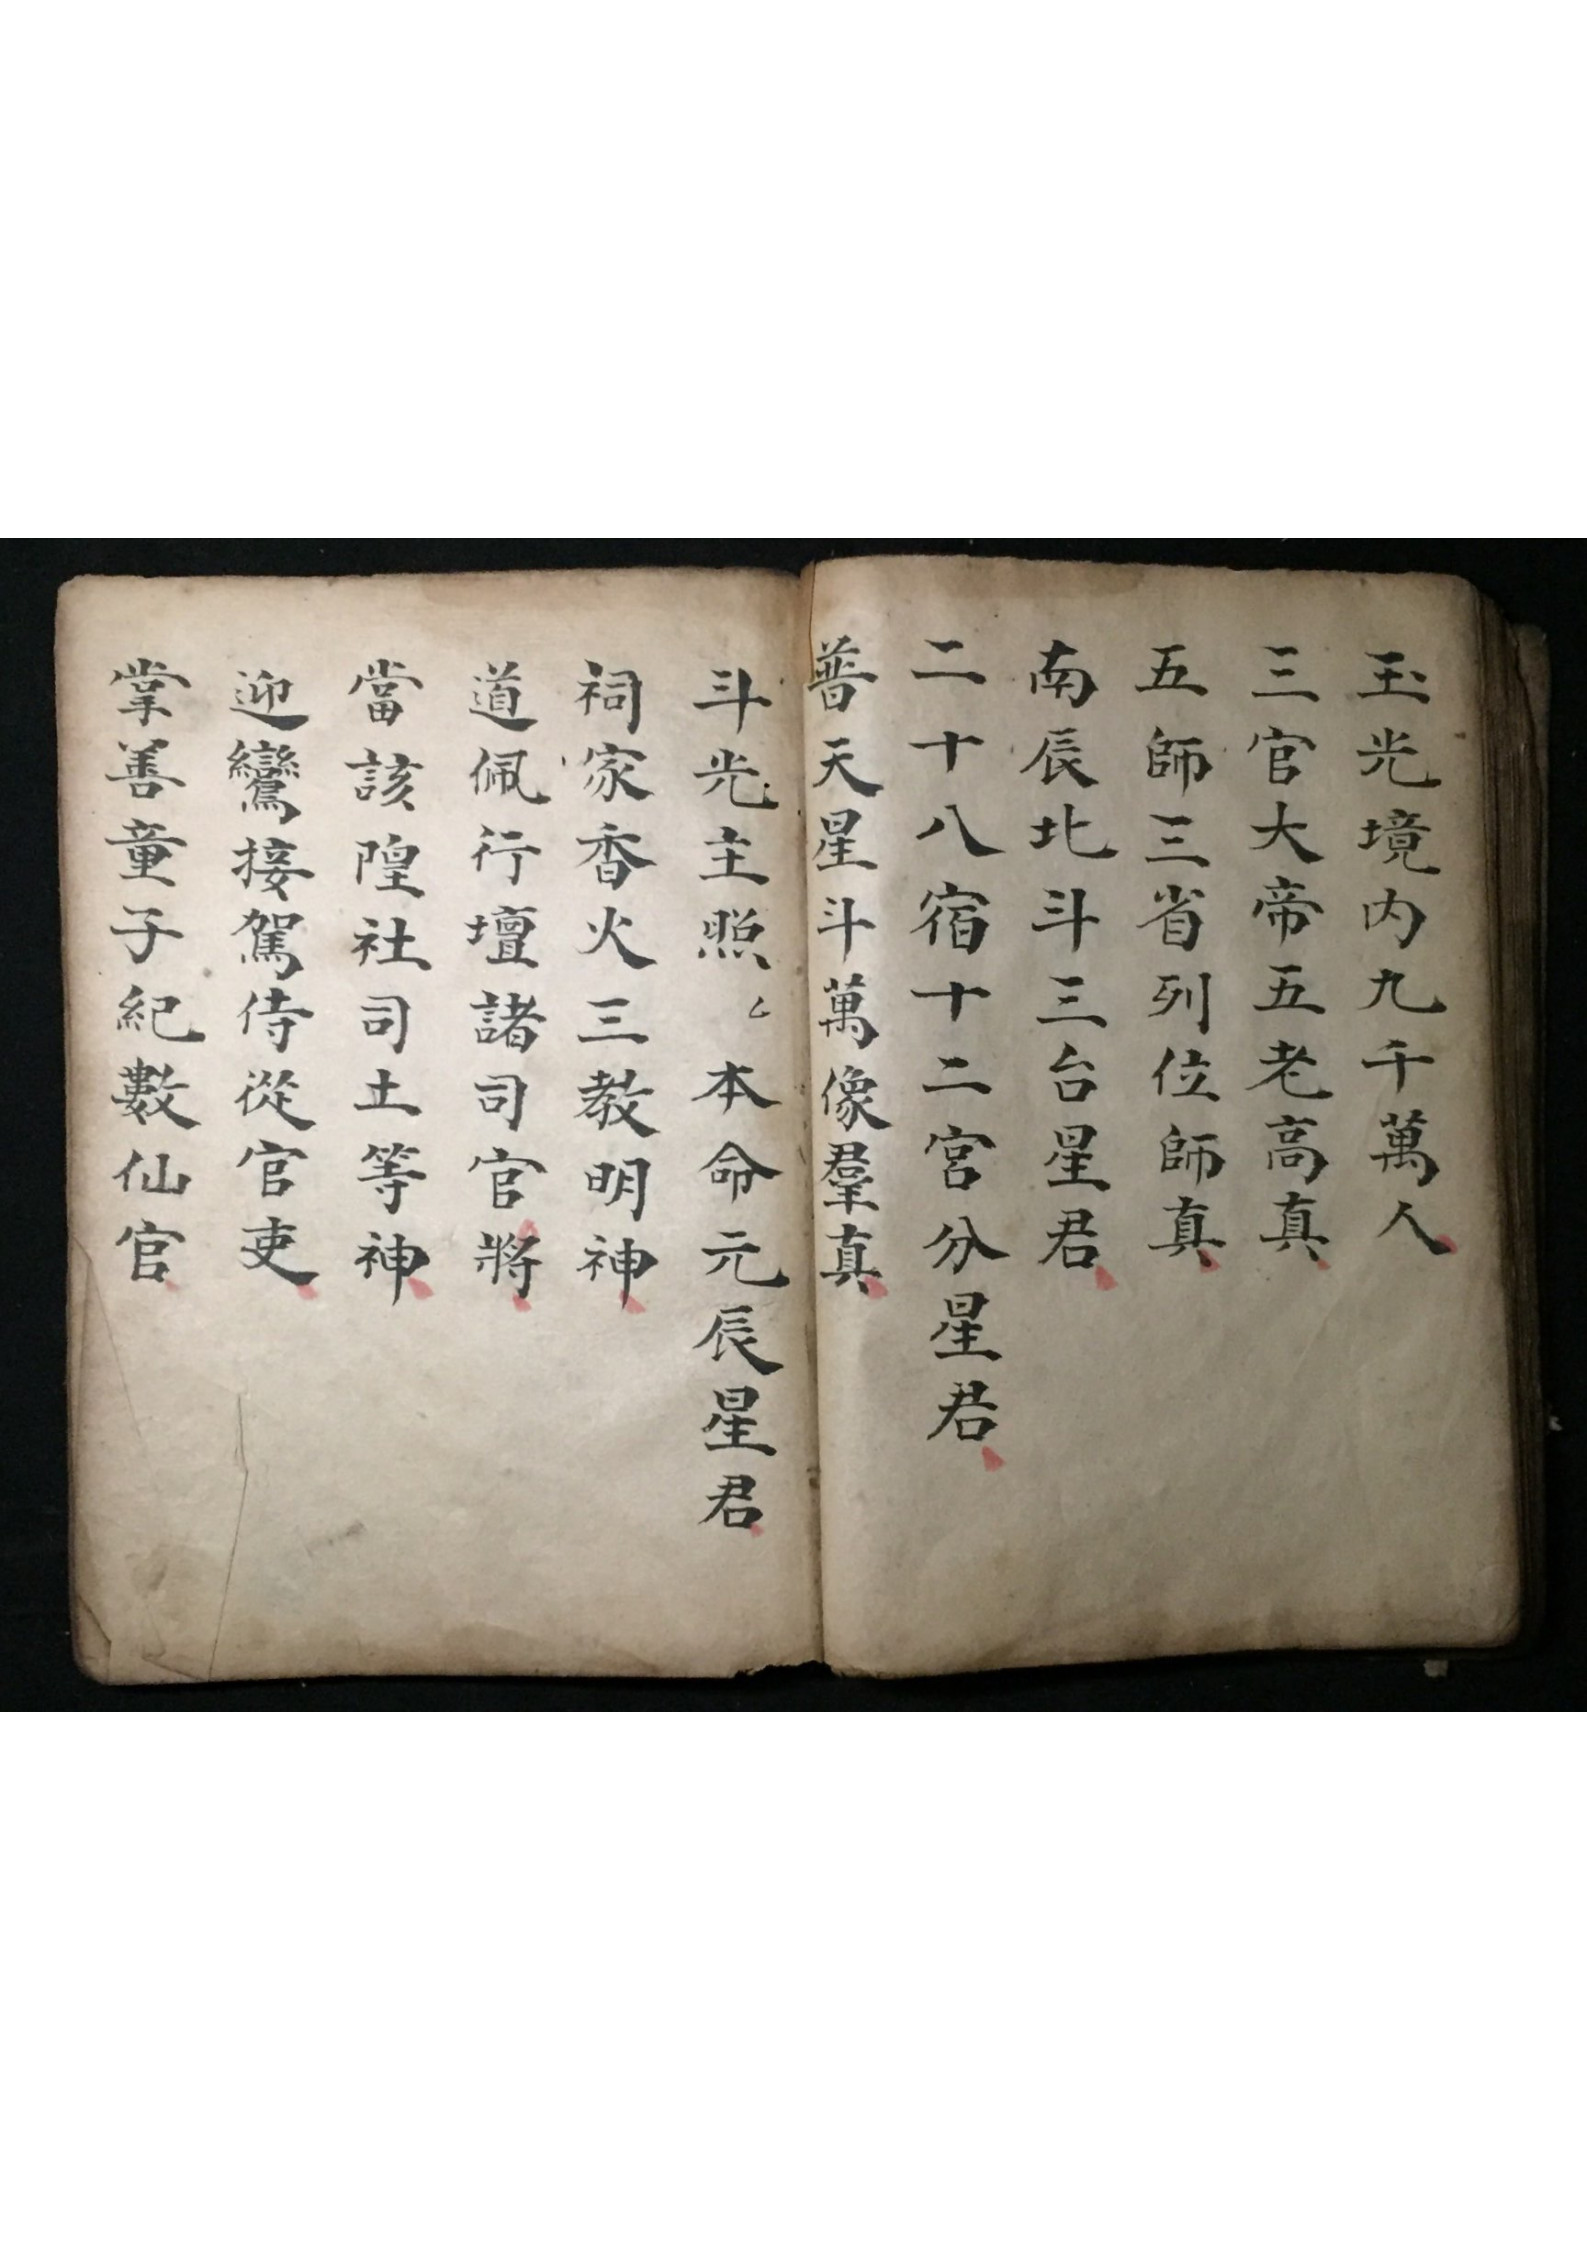 玉光境内九千萬人
三官大帝五老高真
五師三省列位師真
南辰北斗三台星君
二十八宿十二宮分星君
普天星斗萬像羣真
斗光主照厶本命元辰星君
祠家香火三教明神
道佩行壇諸司官將
當該隍社司土等神
迎鸞接駕侍從官吏
掌善童子紀數仙官